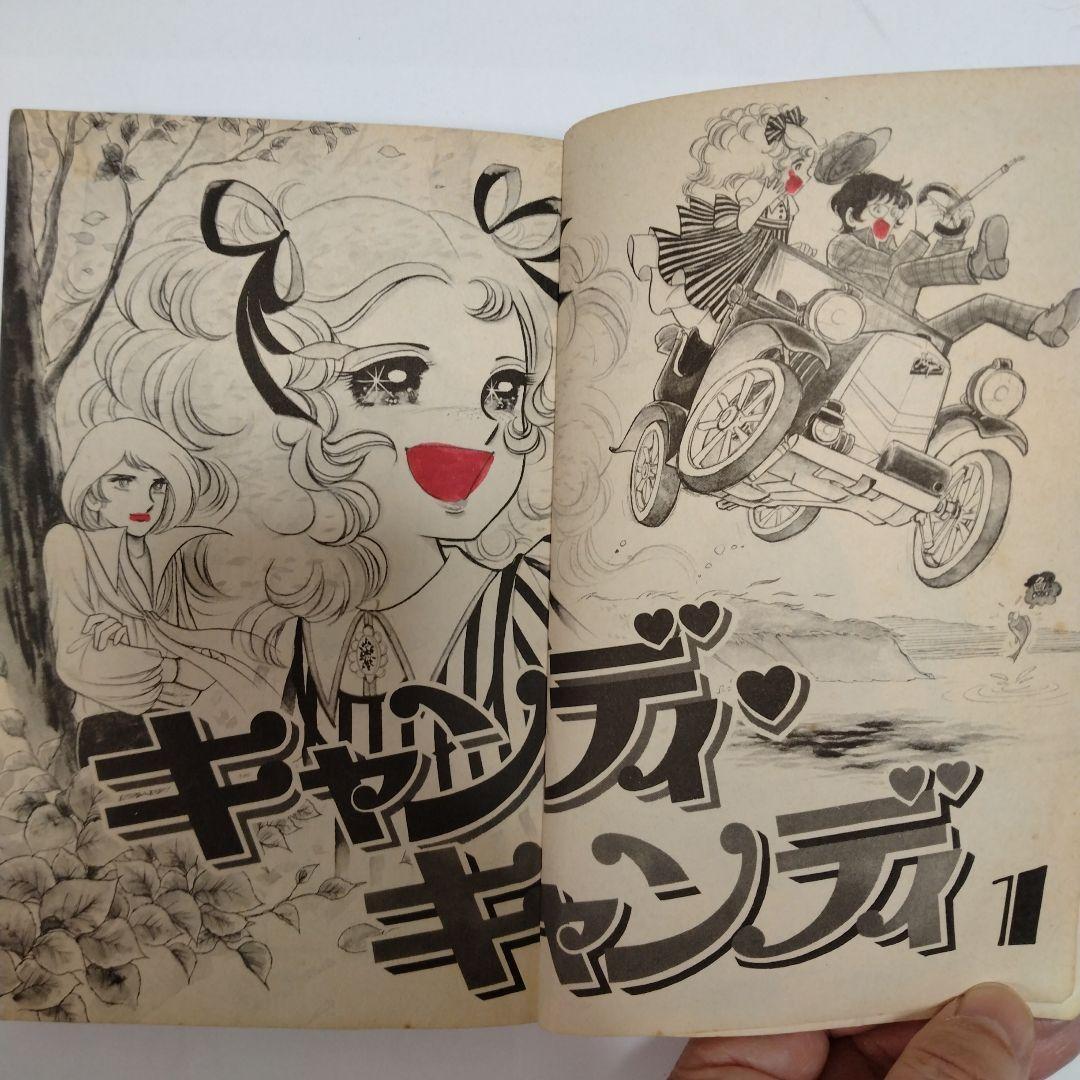 キャンディ♥
キャンディ 1